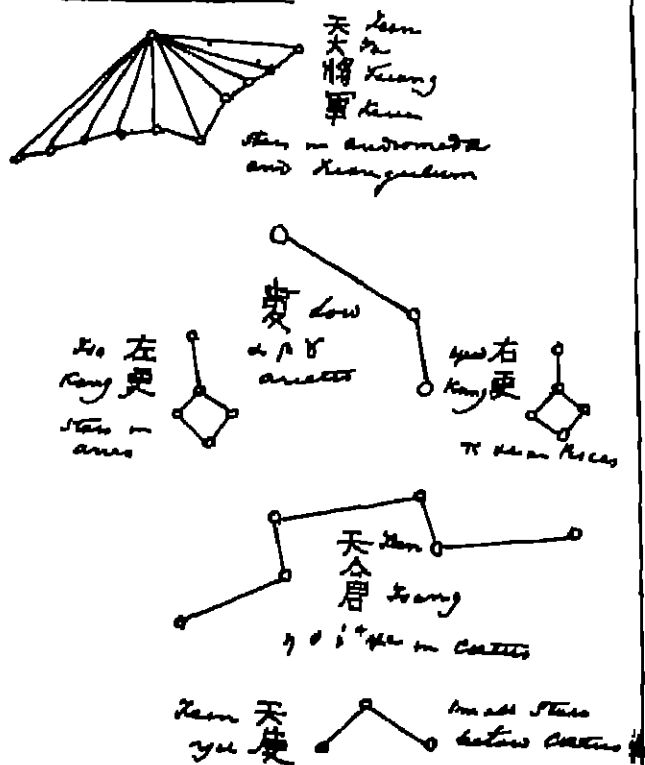 天 Teen
大 Ta
將 Tseang
軍 Keun
Stars in Andromeda
and Triangulum
婁 Low
α β γ
Arietis
Tso 左
Kang 更
Stars in
Aries
Yew 右
Kang 更
π in Pisces
天 Teen
倉 Tsang
in Cetus
Teen 天
Yu
Small Stars
below Cetus